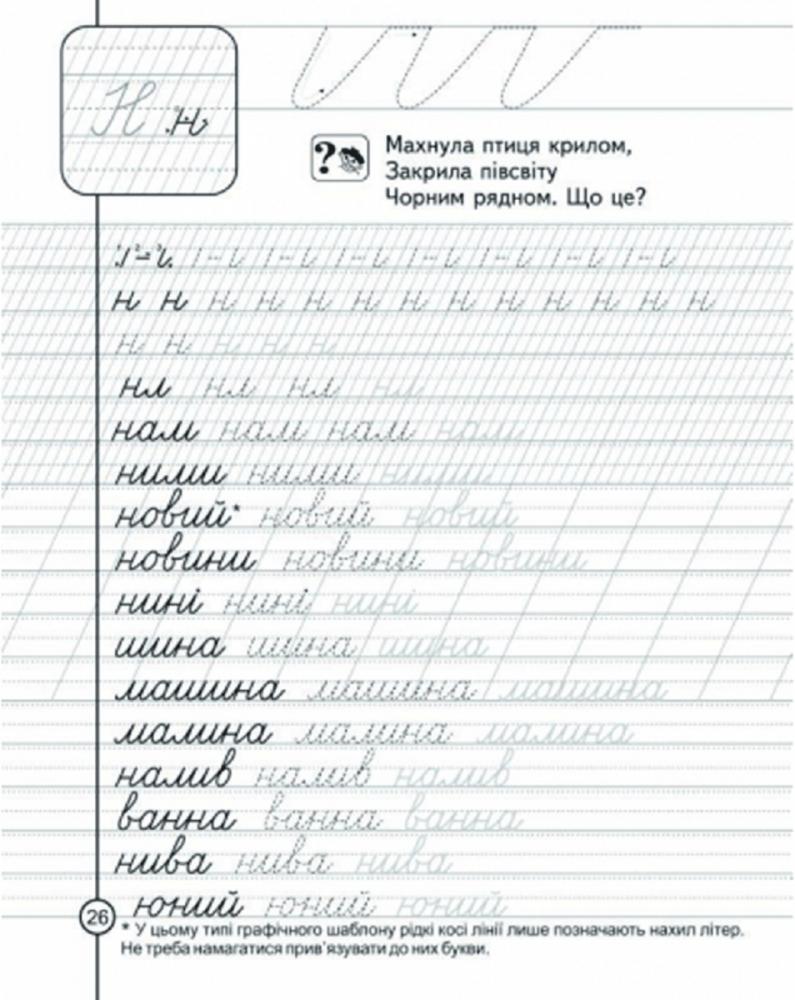 Н н
Махнула птиця крилом,
Закрила півсвіту
Чорним рядном. Що це?
н н н н н н н н н н н н н
н н н н н
нл нл нл нл
нам нам нам нам
ними ними ними
новий* новий новий
новини новини новини
нині нині нині
шина шина шина
машина машина машина
малина малина малина
налив налив налив
ванна ванна ванна
нива нива нива
юний юний юний
26
* У цьому типі графічного шаблону рідкі косі лінії лише позначають нахил літер.
Не треба намагатися прив'язувати до них букви.